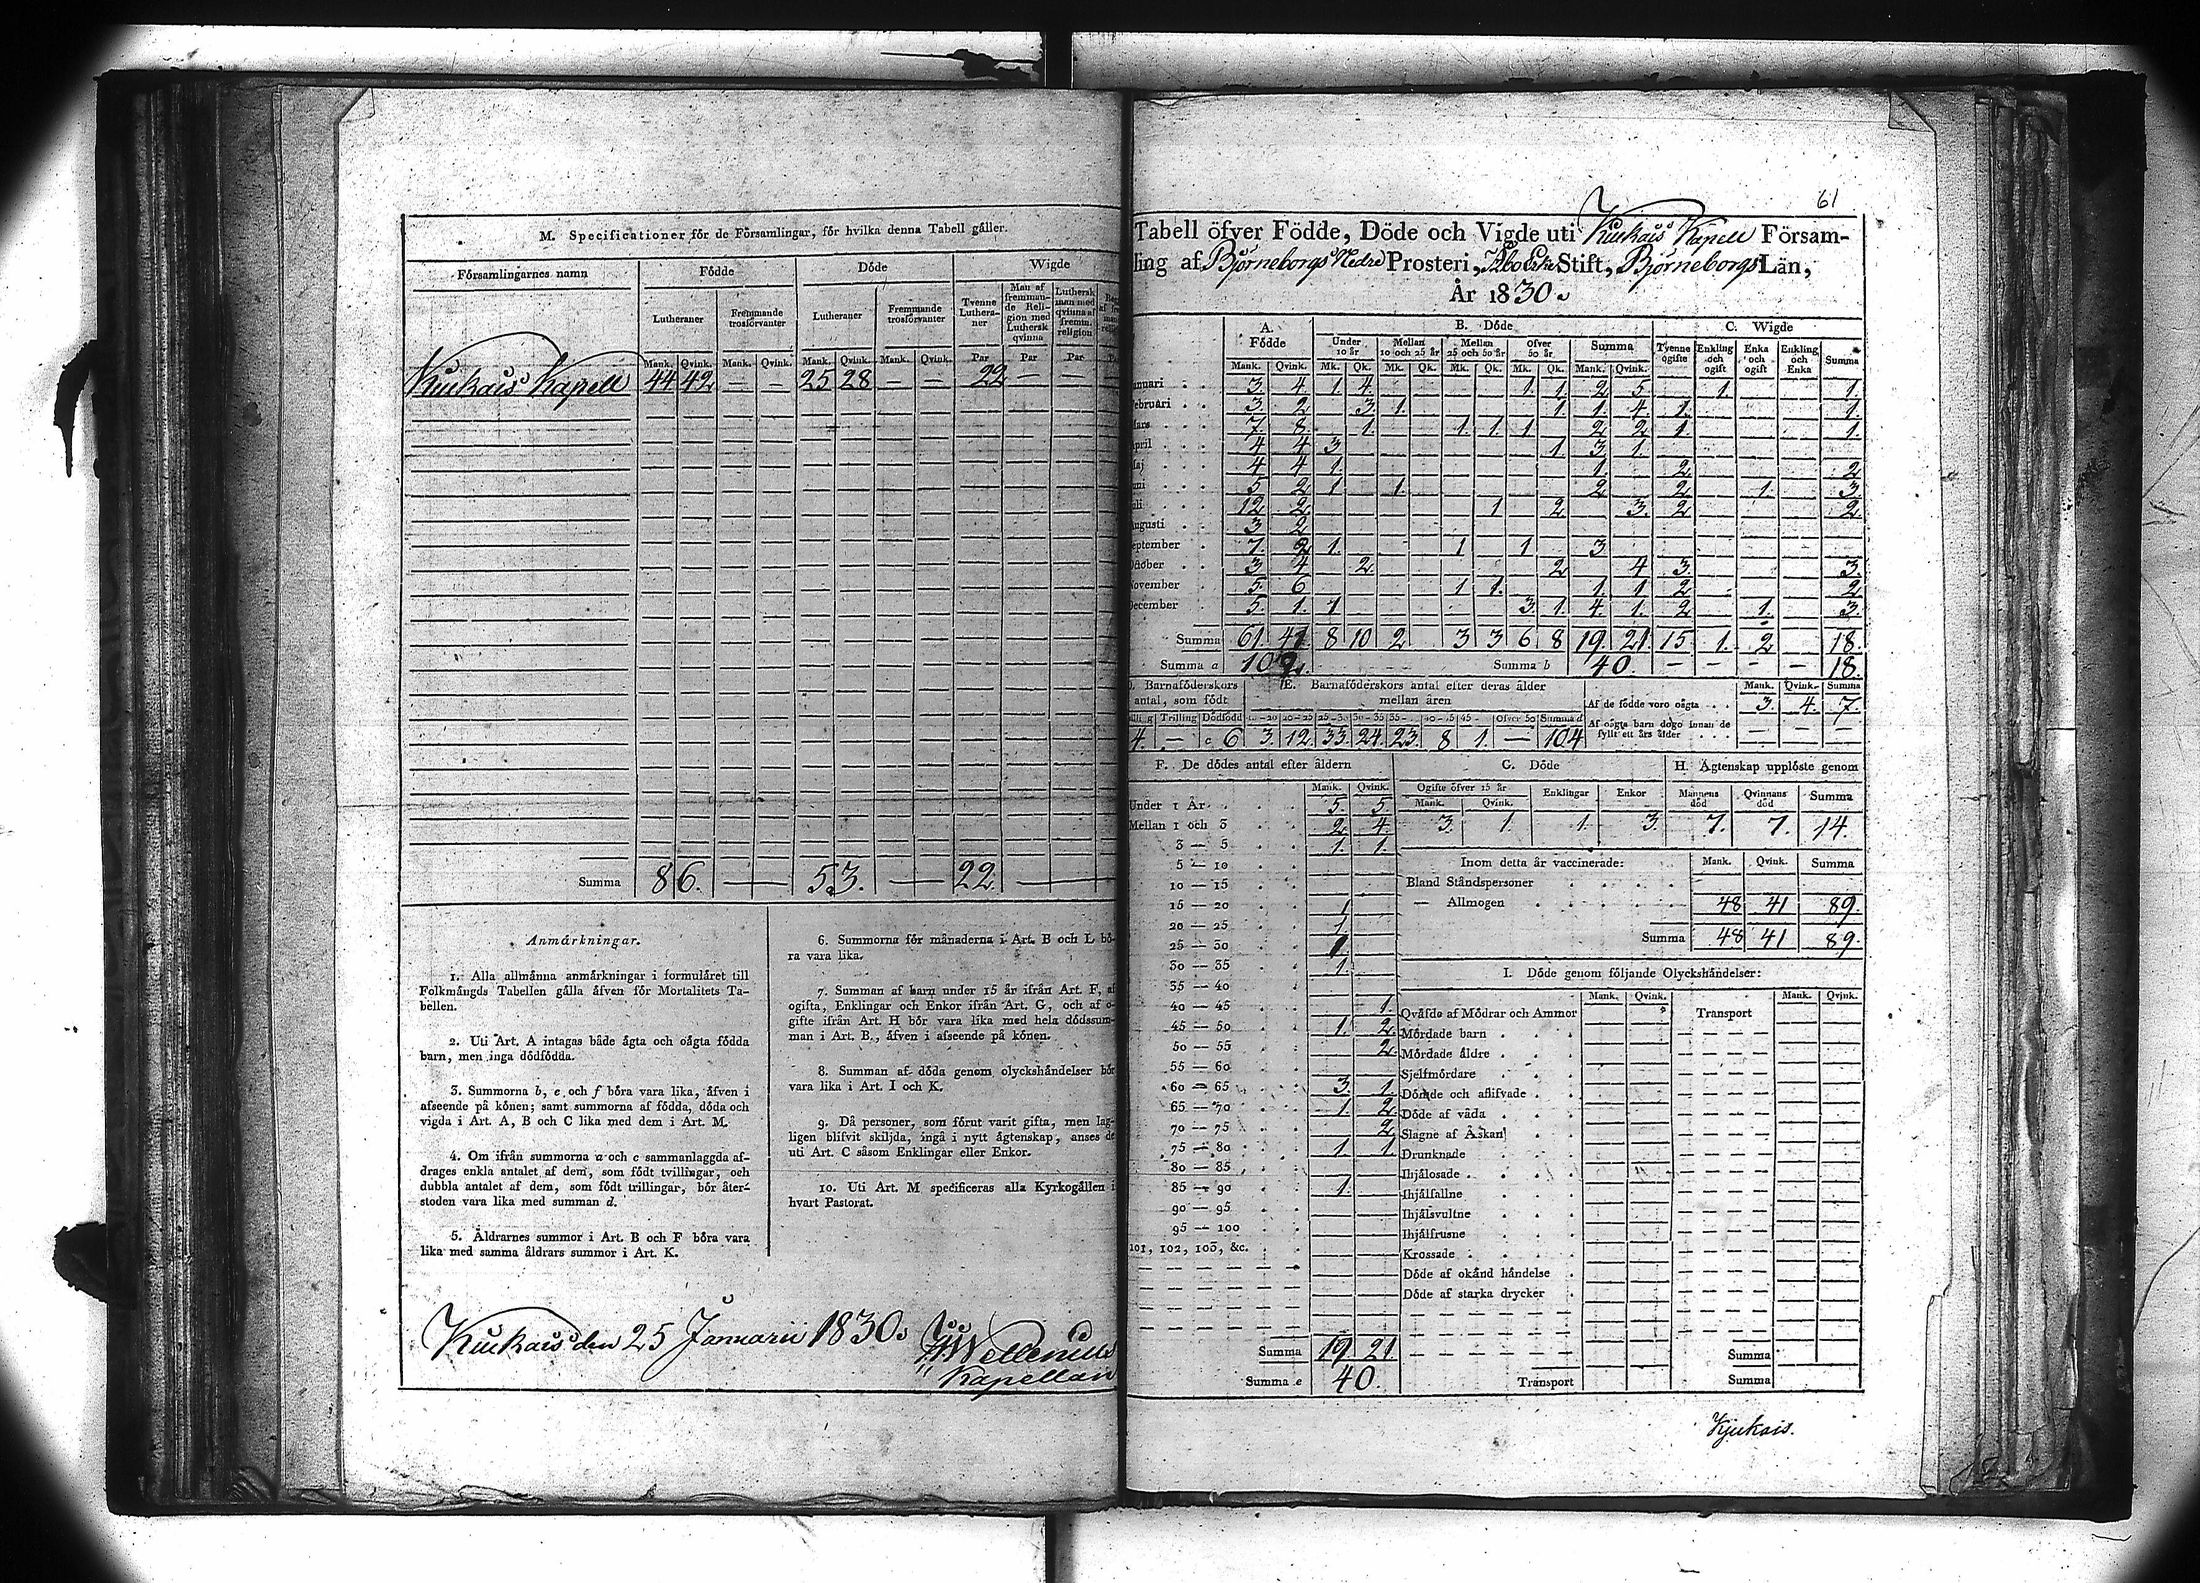 M. Specificationer för de Församlingar, för hvilka denna Tabell gäller.
Församlingarnes namn Födde Döde Wigde
Lutheraner Fremmande trosförvanter Lutheraner Fremmande trosförvanter Tvenne Lutheraner Man af fremmande Religion med Luthersk qvinna Luthersk man med qvinna af fremm. religion
Mank. Qvink. Mank. Qvink. Mank. Qvink. Mank. Qvink. Par Par Par
Kiukais Kapell 44 42 — — 25 28 — — 22 — —
Summa 86. — 53. — 22 —
Anmärkningar.
1. Alla allmänna anmärkningar i formuläret till
Folkmängds Tabellen gälla äfven för Mortalitets Ta-
bellen.
2. Uti Art. A intagas både ägta och oägta födda
barn, men inga dödfödda.
3. Summorna b, e och f böra vara lika, äfven i
afseende på könen; samt summorna af födda, döda och
vigda i Art. A, B och C lika med dem i Art. M.
4. Om ifrån summorna a och c sammanlaggda af-
drages enkla antalet af dem, som födt tvillingar, och
dubbla antalet af dem, som födt trillingar, bör åter-
stoden vara lika med summan d.
5. Åldrarnes summor i Art. B och F böra vara
lika med samma åldrars summor i Art. K.
6. Summorna för månaderna i Art. B och L bö-
ra vara lika.
7. Summan af barn under 15 år ifrån Art. F, af
ogifta, Enklingar och Enkor ifrån Art. G, och af o-
gifte ifrån Art. H bör vara lika med hela dödssum-
man i Art. B., äfven i afseende på könen.
8. Summan af döda genom olyckshändelser bör
vara lika i Art. I och K.
9. Då personer, som förut varit gifta, men lag-
ligen blifvit skiljda, ingå i nytt ägtenskap, anses de
uti Art. C såsom Enklingar eller Enkor.
10. Uti Art. M specificeras alla Kyrkogällen i
hvart Pastorat.
Kiukais den 25 Januarii 1830.
Wellenius
Kapellan
61
Tabell öfver Födde, Döde och Vigde uti Kiukais Kapell Församling
af Björneborgs Nedre Prosteri, Åbo Stift, Björneborgs Län,
År 1830.
A. Födde B. Döde C. Wigde
Under 10 år Mellan 10 och 25 år Mellan 25 och 50 år Öfver 50 år. Summa Tvenne ogifte Enkling och ogift Enka och ogift Enkling och Enka Summa
Mank. Qvink. Mk. Qk. Mk. Qk. Mk. Qk. Mk. Qk. Mank. Qvink.
anuari 3 4 1 4 1 1 2 5 1. 1.
ebruari 3 2 3 1. 1 1. 4 1. 1
Mars 7 8 1 1. 1. 1 2 2 1. 1.
April 4 4 3 1 3 1.
Maj 4 4 1 1. 2 2
uni 5 2 1 1 2 2 1. 3
uli 12 2 1 2 3 2 2
ugusti 3 2
eptember 7 2 1. 1 1 3
October 3 4 2 2 4 3. 3.
November 5 6 1 1. 1. 1 2 2
December 5 1. 1 3 1 4. 1. 2 1. 3
Summa 61 41 8 10 2 3 3 6 8 19. 21. 15. 1. 2 18.
Summa a 102. Summa b 40. — — — 18.
D. Barnaföderskors antal, som födt
E. Barnaföderskors antal efter deras ålder mellan åren
Trilling Dödfödd 20–25 25–30 30–35 35– 45– Öfver 50 Summa d
4. — c 6 3. 12. 33. 24. 23. 8 1. — 104
Mank. Qvink. Summa
Af de födde voro oägta 3. 4. 7.
Af oägta barn dogo innan de fyllt ett års ålder — — —
F. De dödes antal efter åldern
Mank. Qvink.
Under 1 År 5 5
Mellan 1 och 3 2 4
3 — 5 1. 1.
5 — 10
10 — 15
15 — 20 1
20 — 25 1
25 — 30 1
30 — 35 1.
35 — 40
40 — 45 1.
45 — 50 1. 2
50 — 55 2
55 — 60
60 — 65 3. 1
65 — 70 1. 2
70 — 75 2
75 — 80 1 1
80 — 85
85 — 90 1.
90 — 95
95 — 100
101, 102, 103, &c.
Summa 19. 21
Summa e 40.
G. Döde
Ogifte öfver 15 år Enklingar Enkor
Mank. Qvink.
3. 1. 1. 3.
H. Ägtenskap upplöste genom
Mannens död Qvinnans död Summa
7. 7. 14.
Inom detta år vaccinerade: Mank. Qvink. Summa
Bland Ståndspersoner
— Allmogen 48 41 89.
Summa 48 41 89.
I. Döde genom följande Olyckshändelser:
Mank. Qvink. Mank. Qvink.
Qväfde af Mödrar och Ammor Transport
Mördade barn
Mördade äldre
Sjelfmördare
Dömde och aflifvade
Döde af våda
Slagne af Åskan
Drunknade
Ihjälosade
Ihjälfallne
Ihjälsvultne
Ihjälfrusne
Krossade
Döde af okänd händelse
Döde af starka drycker
Summa
Transport Summa
Kjukais.